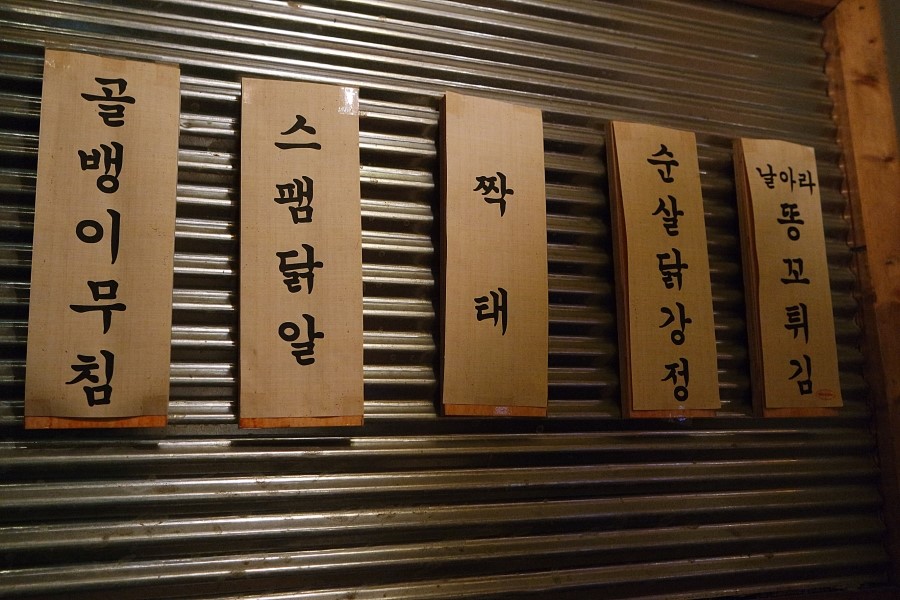 골뱅이무침
스팸닭알
짝태
순살닭강정
날아라
똥꼬튀김